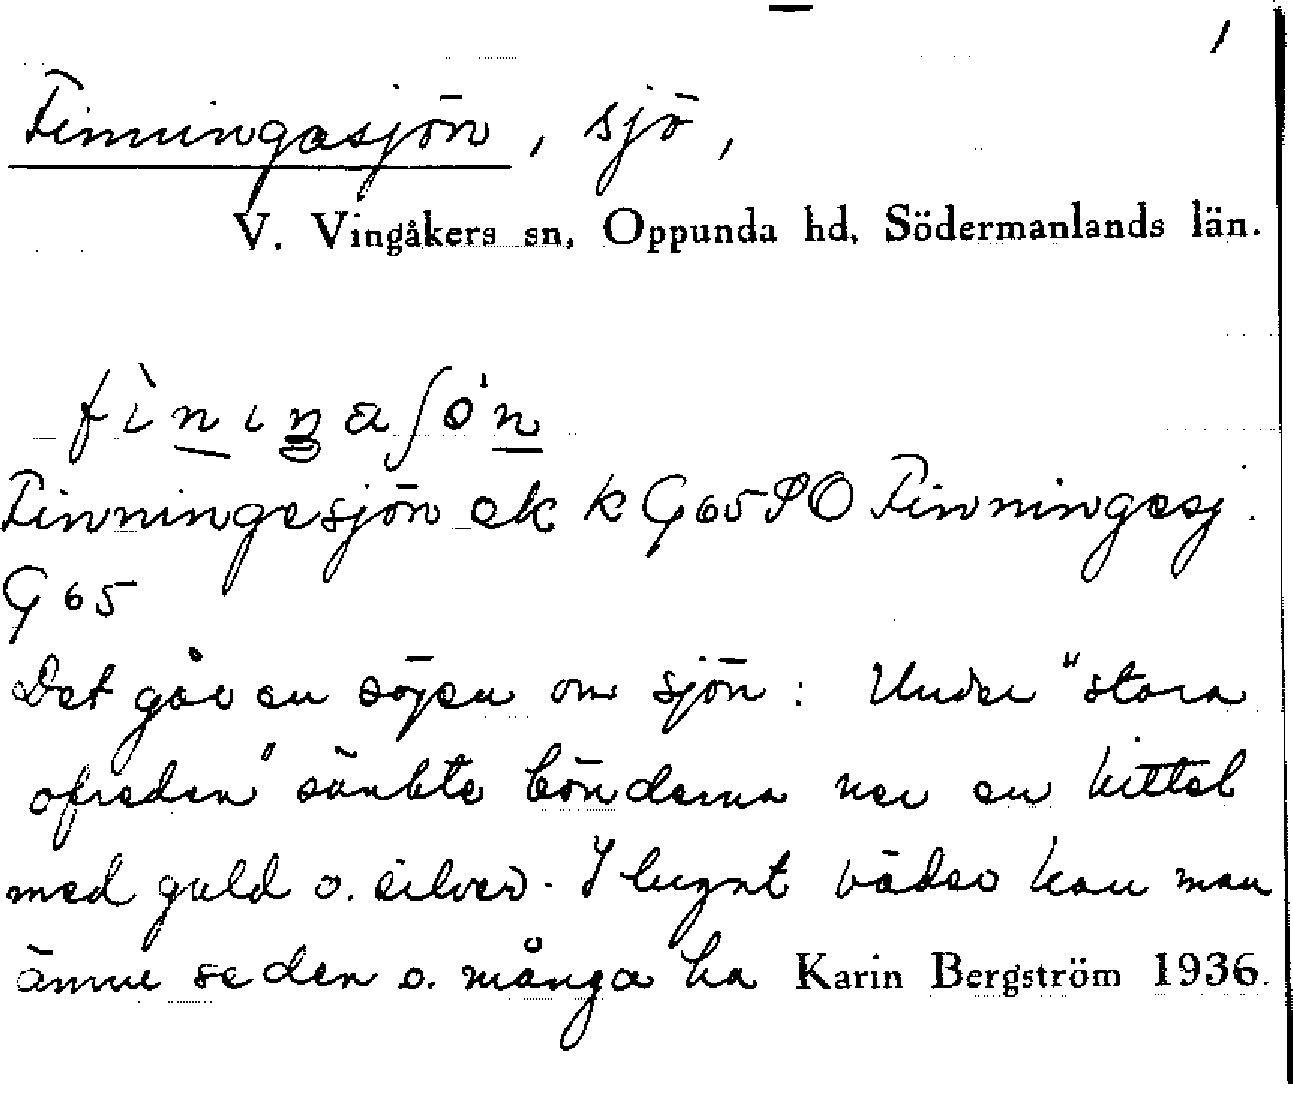 1
Finningasjön, sjö,
V. Vingåkers sn, Oppunda hd, Södermanlands län.
fìnıŋaʃö'n
Finningesjön ek k G65 SO Finningesj.
G65
Det går en sägen om sjön: Under "stora
ofreden" sänkte bönderna ner en kittel
med guld o. silver. I lugnt väder kan man
ännu se den o. många ha Karin Bergström 1936.